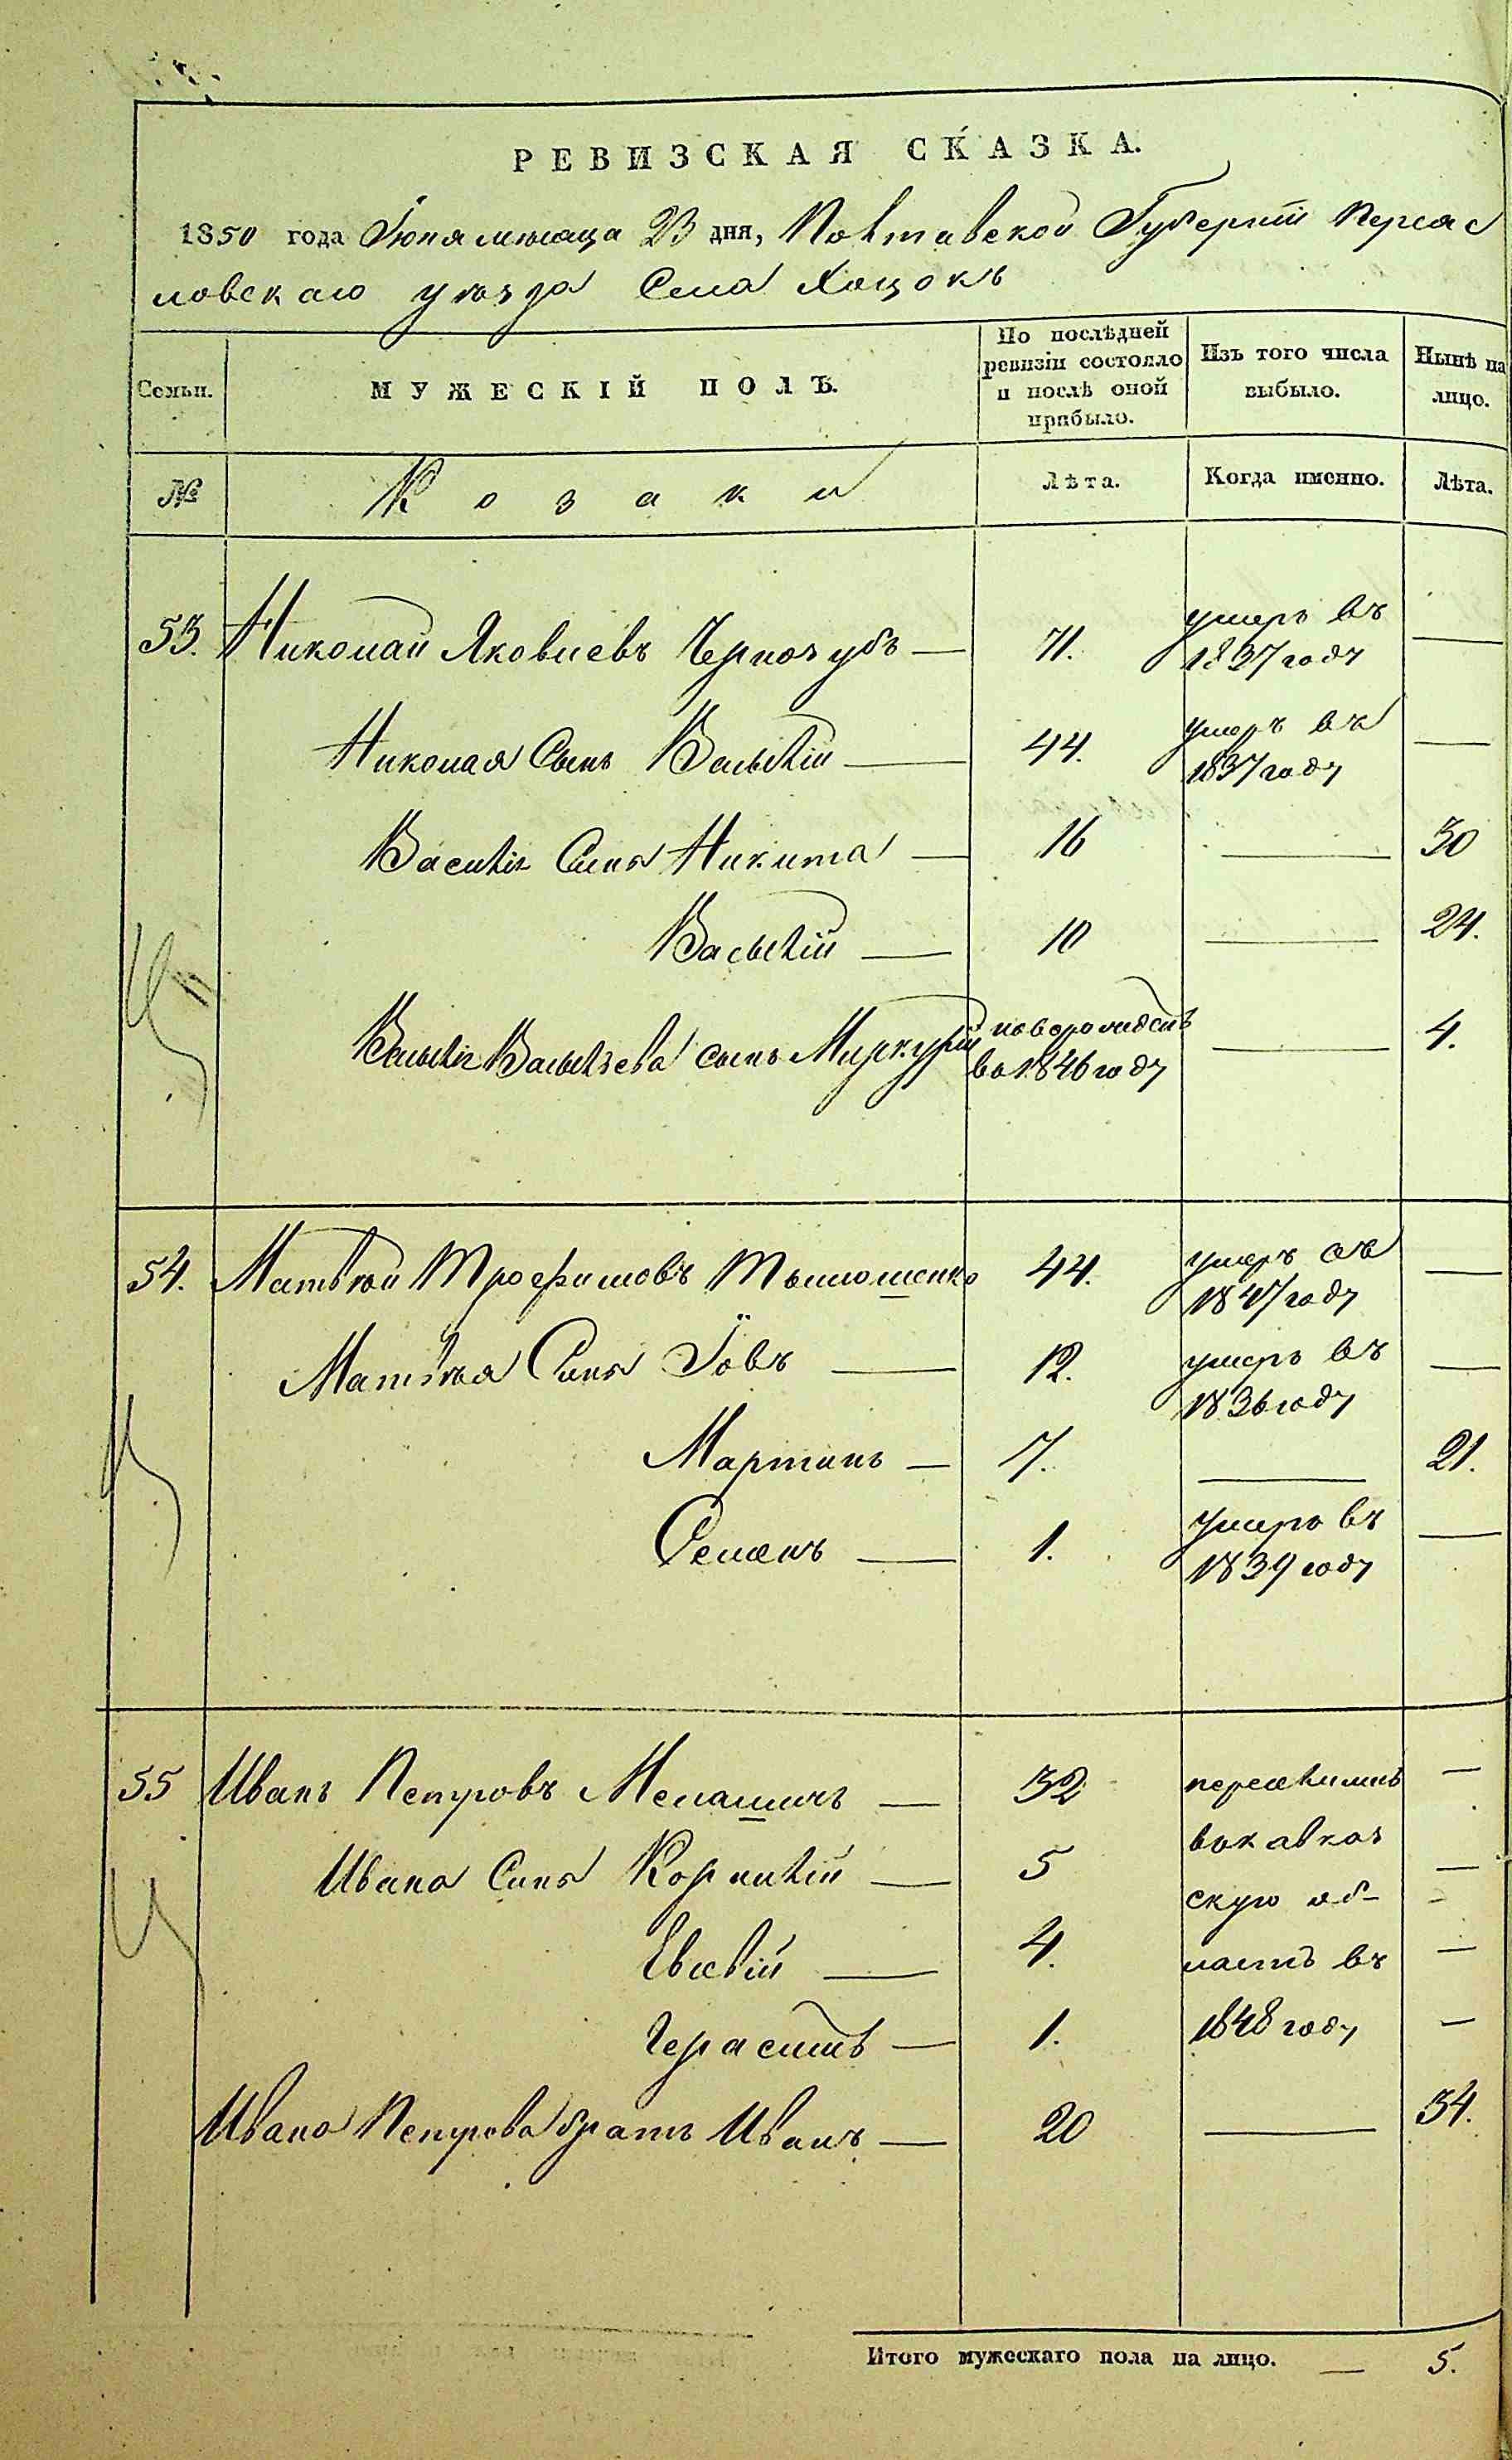 РЕВИЗСКАЯ СКАЗКА.
1850 года Іюня мѣсяца 23 дня, Полтавской Губерніи Переяс
ловскаго уѣзда Села Хоцокъ
Семьи. МУЖЕСКІЙ ПОЛЪ. По послѣдней ревизіи состояло и послѣ оной прибыло. Изъ того числа выбыло. Нынѣ на лицо.
№ Козаки Лѣта. Когда именно. Лѣта.
53. Николай Яковлевъ Чернозубъ — 71. умеръ въ 1837 году —
Николая Сынъ Василій — 44. умеръ въ 1837 году —
Василія Сынъ Никита — 16 — 30
Василій — 10 — 24.
Василія Васильева сынъ Меркурій новорожденъ въ 1846 году — 4.
54. Матвѣй Трофимовъ Тимошенко 44. умеръ въ 1847 году —
Матвѣя Сынъ Іовъ — 12. умеръ въ 1836 году —
Мартинъ — 7. — 21.
Семенъ — 1. умеръ въ 1839 году —
55 Иванъ Петровъ Мелашичъ — 32 переселились —
Ивана Сынъ Корнилій — 5 вокавказ —
скую об-
Евсевій — 4. ласть въ —
Герасимъ — 1. 1848 году —
Ивана Петрова братъ Иванъ — 20 — 34.
Итого мужескаго пола на лицо. — 5.